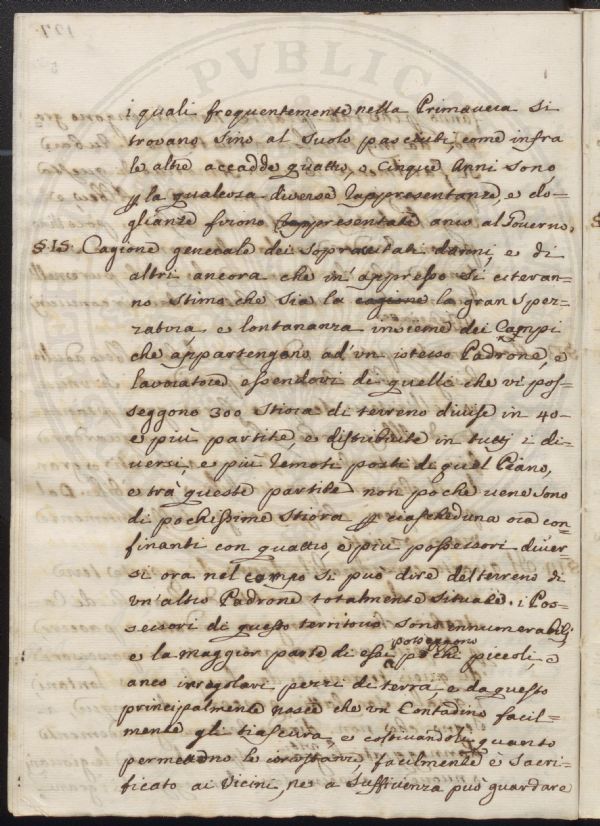 i quali frequentemente nella Primavera si
trovano sino al suolo pasciuti, come infra
le altre accadde quattro, o Cinque Anni sono
per la qual cosa diverse rappresentanze, e do=
glianze furono rappresentate anco al Governo.
§. 15. Cagione generale dei sopracitati danni, e di
altri ancora che in appresso si citeran=
no stimo che sia la cagione la gran sper=
ratura e lontananza insieme dei Campi
che appartengano ad un istesso Padrone, e
lavoratore essendovi di quelli che vi pos=
seggono 300 stiora di terreno divise in 40=
e più partite, e distribuite in tutti i di=
versi, e più remoti posti di quel Piano,
e tra queste partite non poche vene sono
di pochissime stiora per ciascheduna ora con=
finanti con quattro, e più possessori diver
si ora nel campo si può dire del terreno di
un altro Padrone totalmente situate. i Pos=
sessori di questo territorio sono innumerabili
e la maggior parte di essi posseggono pochi piccoli, e
anco irregolari pezzi di terra, e da questo
principalmente nasce che un Contadino facil=
mente gli trascura, e coltivandoli quanto
permettono le circostanze facilmente è sacri=
ficato ai Vicini, ne a sufficienza può guardare